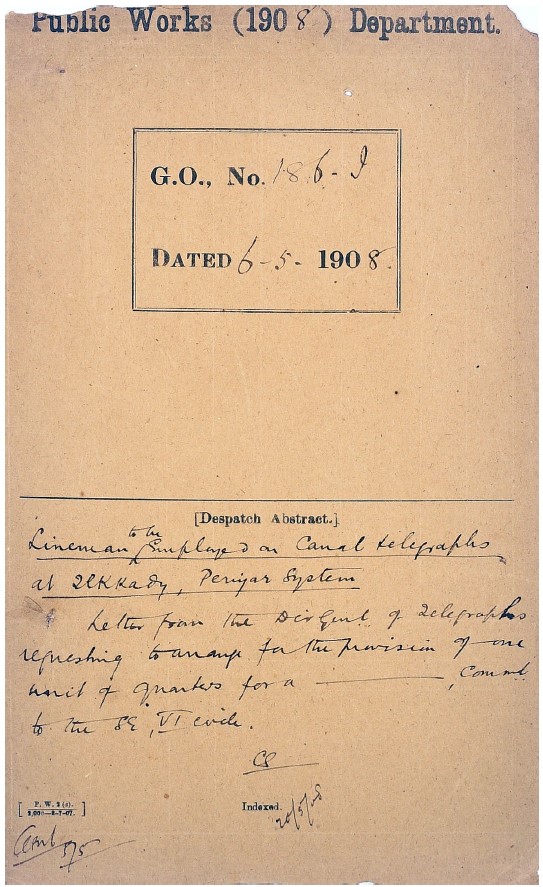 Public Works (1908) Department.
G.O., No. 186-I
DATED 6-5-1908.
[Despatch Abstract.]
Lineman to be Employed on Canal telegraphs
at Tekkady, Periyar System
Letter from the Dir Genl of Telegraphs
requesting to arrange for the provision of one
unit of quarters for a ———, Comml
to the SE, VI circle.
[P. W. 2 (a).
2,000—3-7-07.]
Indexed.
20/5/08
5/5